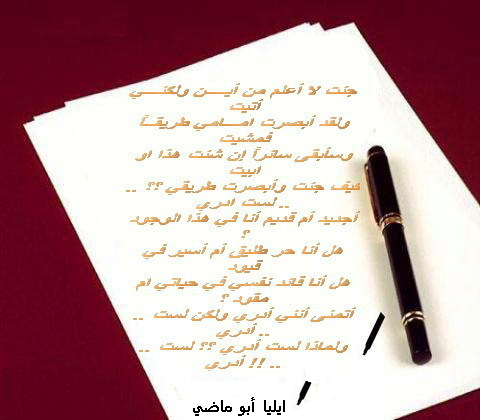 جئت لا أعلم من أيــــن ولكنــــي
أتيت
ولقد أبصرت امـــامي طريقــاً
فمشيت
وسأبقى سائراً إن شئت هذا او
ابيت
كيف جئت وأبصرت طريقي ؟؟ ..
.. لست ادري
أجديد أم قديم أنا في هذا الوجود
؟
هل أنا حر طليق أم أسير في
قيود
هل أنا قائد نفسي في حياتي ام
مقود ؟
أتمنى أنني أدري ولكن لست ..
.. أدري
ولماذا لست أدري ؟؟ لست ..
.. !! أدري
ايليا أبو ماضي